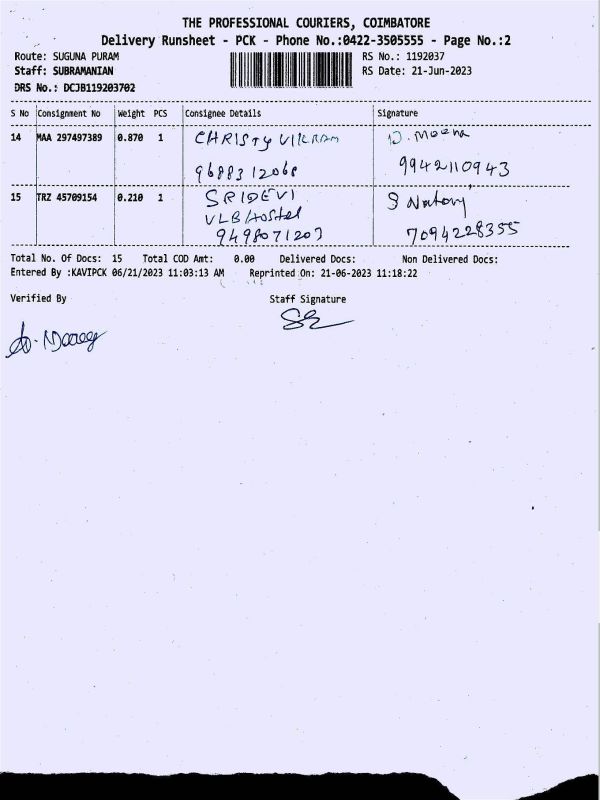 THE PROFESSIONAL COURIERS, COIMBATORE
Delivery Runsheet - PCK - Phone No.:0422-3505555 - Page No.:2
Route: SUGUNA PURAM RS No.: 1192037
Staff: SUBRAMANIAN RS Date: 21-Jun-2023
DRS No.: DCJB119203702
S No Consignment No Weight PCS Consignee Details Signature
14 MAA 297497389 0.870 1 CHRISTY VIKRAM D. Meena
9688312068 9942110943
15 TRZ 45709154 0.210 1 SRIDEVI S
VLB/Hostel
9498071203 7094228355
Total No. Of Docs: 15 Total COD Amt: 0.00 Delivered Docs: Non Delivered Docs:
Entered By :KAVIPCK 06/21/2023 11:03:13 AM Reprinted On: 21-06-2023 11:18:22
Verified By Staff Signature